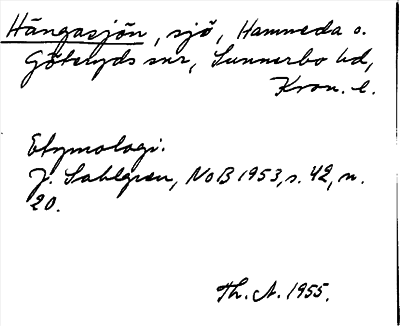 Hängasjön, sjö, Hamneda o.
Göteryds snr, Sunnerbo hd,
Kron. l.
Etymologi.
J. Sahlgren, NoB 1953, s. 42, n.
20.
Th. A. 1955.